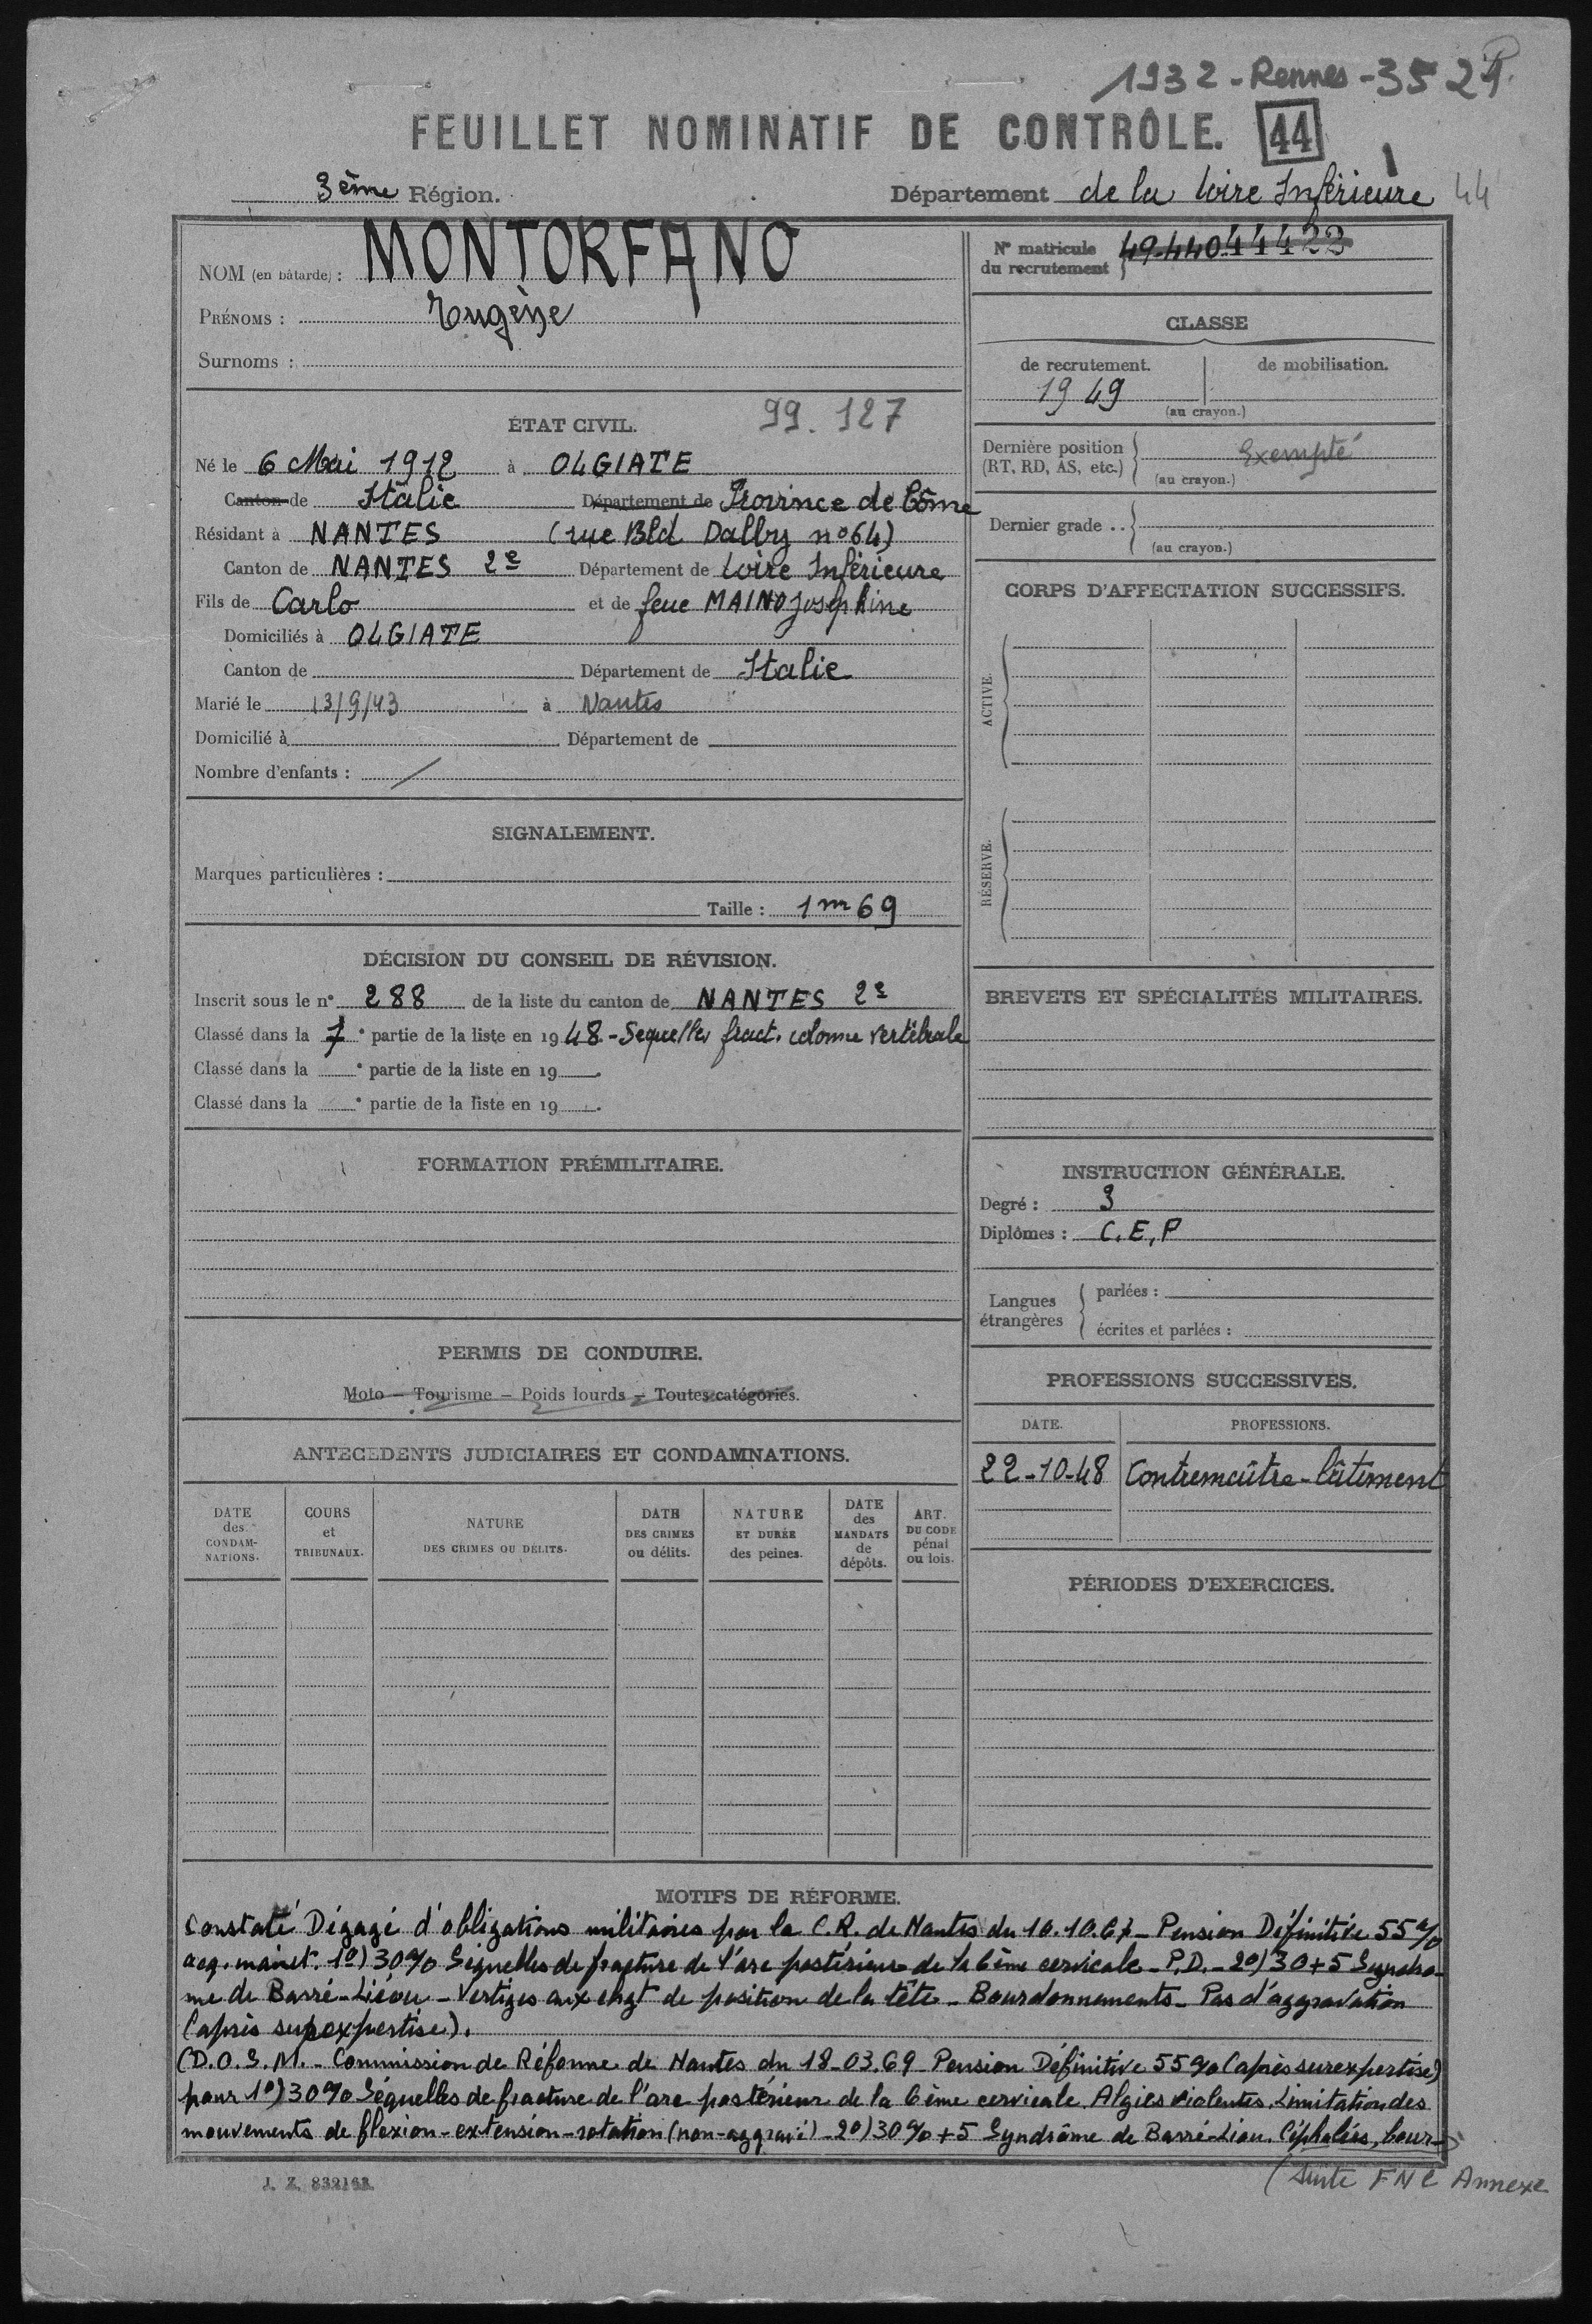 1932-Rennes-352
FEUILLET NOMINATIF DE CONTRÔLE. 44
3ème Région.
Département de la Loire Inférieure 44
NOM (en bâtarde) : MONTORFANO
PRÉNOMS : Eugène
Surnoms :
ÉTAT CIVIL. 99.127
Né le 6 Mai 1912 à OLGIATE
Canton de Italie Département de Province de Côme
Résidant à NANTES (rue Bld Dalby n°64)
Canton de NANTES 2e Département de Loire Inférieure
Fils de Carlo et de feue MAINO Joséphine
Domiciliés à OLGIATE
Canton de Département de Italie
Marié le 13/9/43 à Nantes
Domicilié à Département de
Nombre d'enfants : /
SIGNALEMENT.
Marques particulières :
Taille : 1m69
DÉCISION DU CONSEIL DE RÉVISION.
Inscrit sous le n° 288 de la liste du canton de NANTES 2e
Classé dans la 7e partie de la liste en 1948 - Sequelles fract. colonne vertébrale
Classé dans la e partie de la liste en 19 .
Classé dans la e partie de la liste en 19 .
FORMATION PRÉMILITAIRE.
PERMIS DE CONDUIRE.
Moto – Tourisme – Poids lourds – Toutes catégories.
ANTECEDENTS JUDICIAIRES ET CONDAMNATIONS.
DATE des CONDAMNATIONS.
COURS et TRIBUNAUX.
NATURE DES CRIMES OU DÉLITS.
DATE DES CRIMES ou délits.
NATURE ET DURÉE des peines.
DATE des MANDATS de dépôts.
ART. DU CODE pénal ou lois.
N° matricule du recrutement 49.440 44422
CLASSE
de recrutement. de mobilisation.
1949
(au crayon.)
Dernière position (RT, RD, AS, etc.) Exempté
(au crayon.)
Dernier grade ..
(au crayon.)
CORPS D'AFFECTATION SUCCESSIFS.
ACTIVE.
RÉSERVE.
BREVETS ET SPÉCIALITÉS MILITAIRES.
INSTRUCTION GÉNÉRALE.
Degré : 3
Diplômes : C.E.P
Langues étrangères
parlées :
écrites et parlées :
PROFESSIONS SUCCESSIVES.
DATE. PROFESSIONS.
22-10-48 Contremaître-bâtiment
PÉRIODES D'EXERCICES.
MOTIFS DE RÉFORME.
Constaté Dégagé d'obligations militaires par la C.R. de Nantes du 10.10.67 - Pension Définitive 55%
acq. maint. 1°) 30% Séquelles de fracture de l'arc postérieur de la 6ème cervicale - P.D. - 2°) 30+5 Syndro-
me de Barré-Liéou - Vertiges aux chgt de position de la tête - Bourdonnements - Pas d'aggravation
(après surexpertise).
(D.O.S.M. - Commission de Réforme de Nantes du 18-03.69 Pension Définitive 55% (après surexpertise)
pour 1°) 30% Séquelles de fracture de l'arc postérieur de la 6ème cervicale. Algies violentes. Limitation des
mouvements de flexion-extension-rotation (non-aggravé) - 2°) 30% + 5 Syndrôme de Barré-Liou. Céphalées, bour-
J. Z. 832163.
(suite FNC Annexe